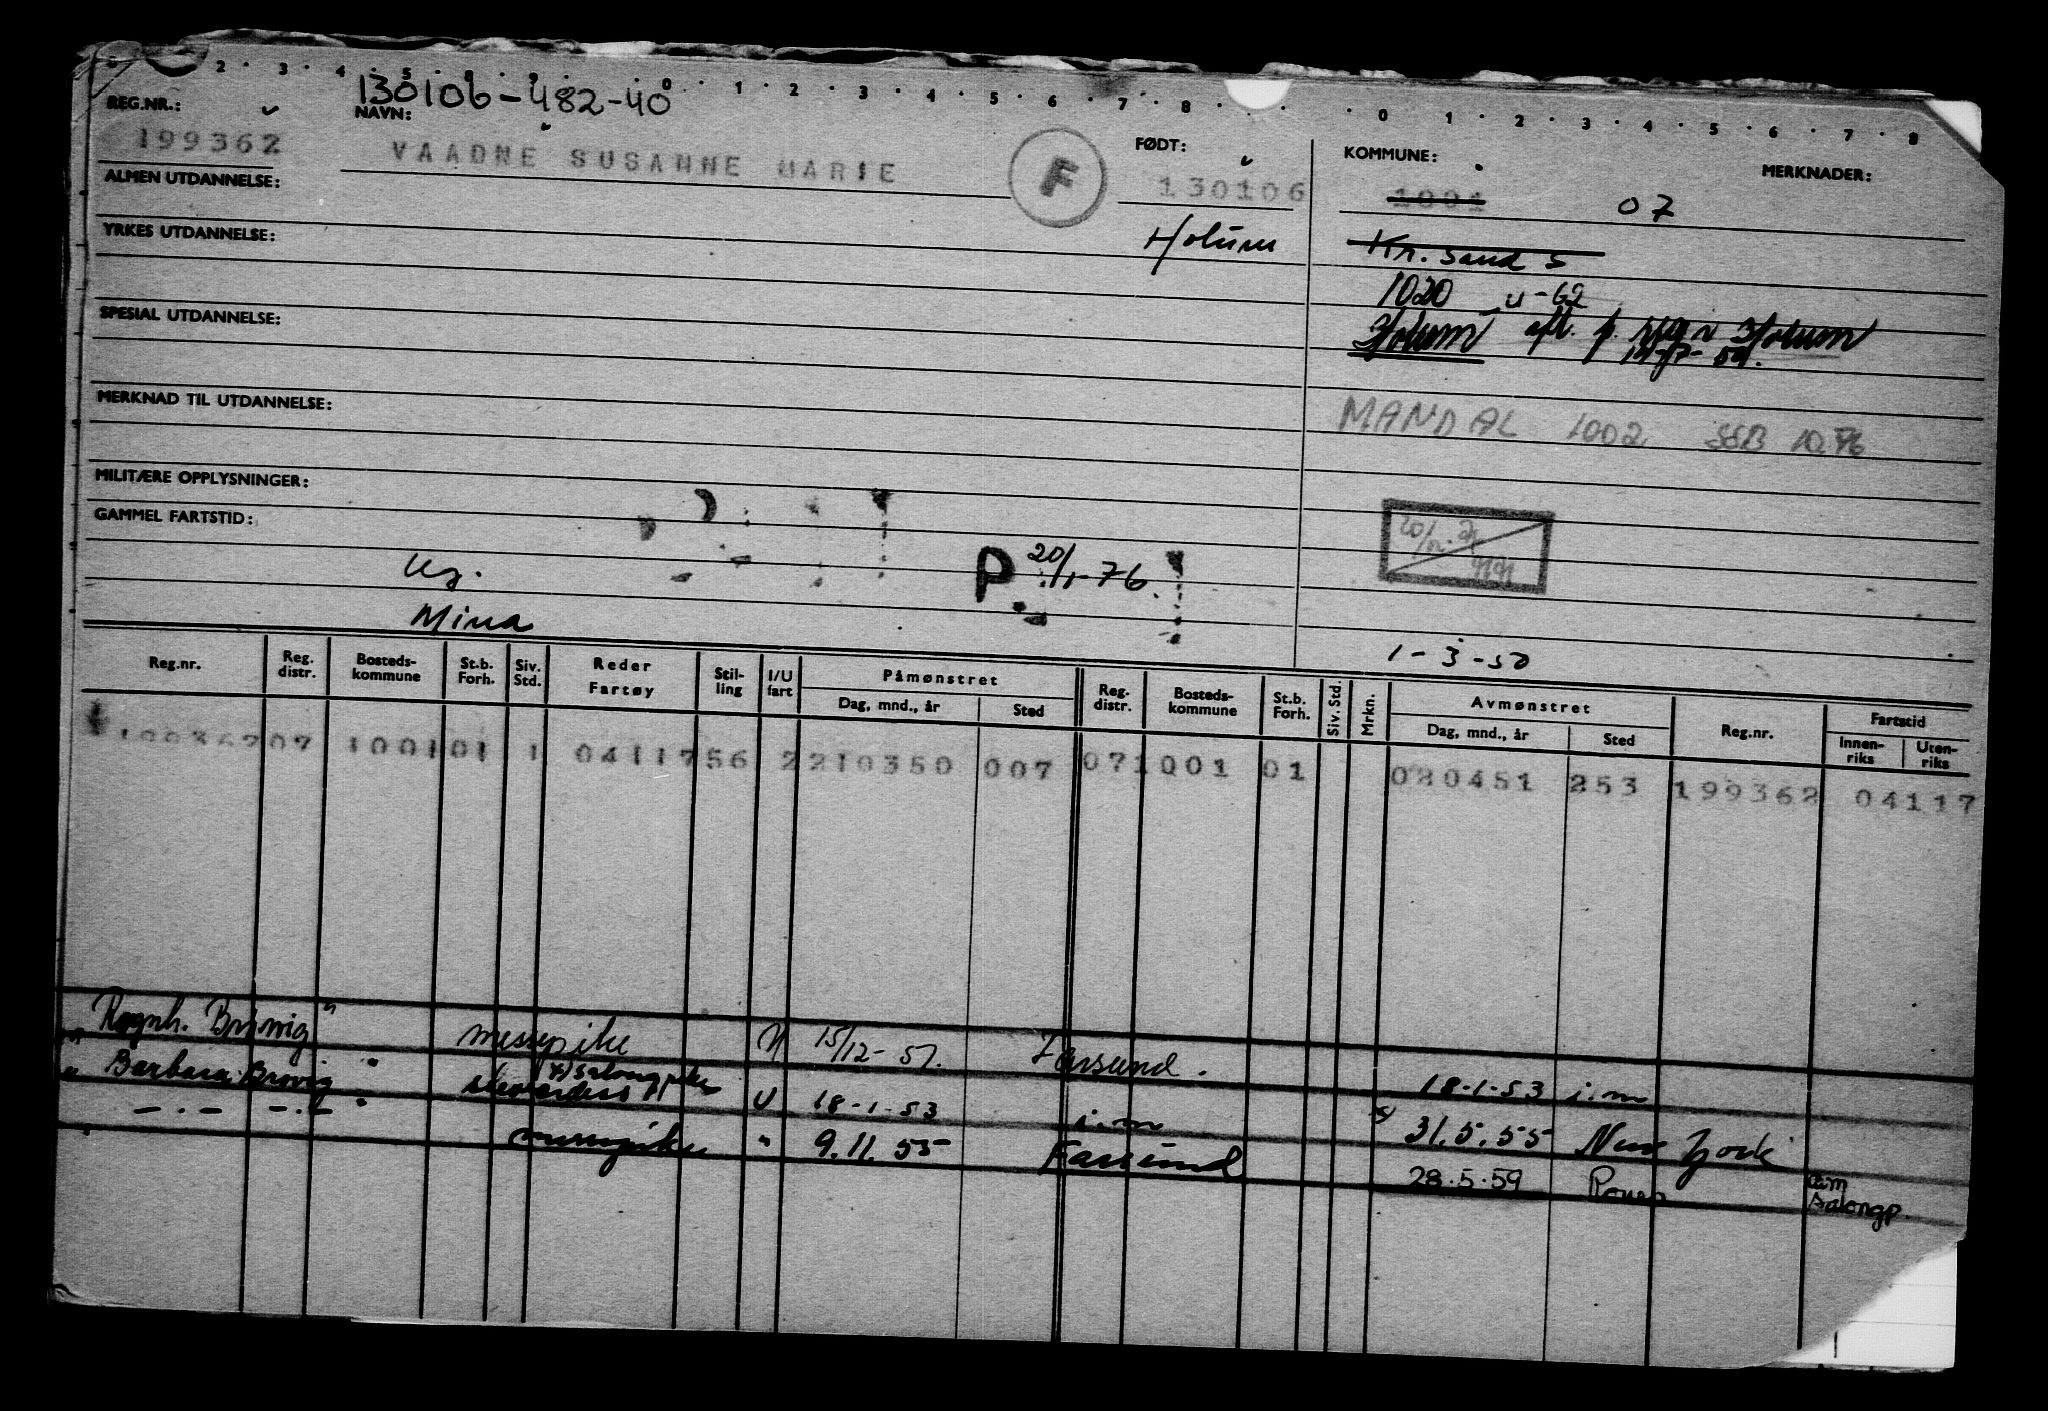 0 2 3 4 5 6 7 0 1 2 3 4 5 6 7 8 0 1 2 3 4 5 6 7 8
130106-482-40
REG.NR.: NAVN: FØDT: KOMMUNE: MERKNADER:
199362 VAADNE SUSANNE MARIE F 130106 1001 07
ALMEN UTDANNELSE:
Holum Kr. sand S
YRKES UTDANNELSE:
1020 u-62
Holum afl. p. Holum
SPESIAL UTDANNELSE:
MERKNAD TIL UTDANNELSE:
MANDAL 1002 SSB 10.76
MILITÆRE OPPLYSNINGER:
GAMMEL FARTSTID:
Ug. P 20/1-76.
Mina
1-3-50
Reg.nr. Reg. distr. Bosteds-kommune St.b. Forh. Siv. Std. Reder Fartøy Stil-ling I/U fart Påmønstret Dag, mnd., år Sted Reg. distr. Bosteds-kommune St.b. Forh. Siv. Std. Mrkn. Avmønstret Dag, mnd., år Sted Reg.nr. Fartstid Innen-riks Uten-riks
199362 07 1001 01 1 04117 56 2 210350 007 07 1001 01 080451 253 199362 04117
" Ragnh. Brøvig " messepike U 15/12-51. Farsund. 18-1-53 i.m
" Barbara Brøvig " stewardess x) salongpike U 18-1-53 i.m x) 31.5.55 New York
— . — — . — " messepike " 9.11.55 Farsund 28.5.59 Rouen am salongp.